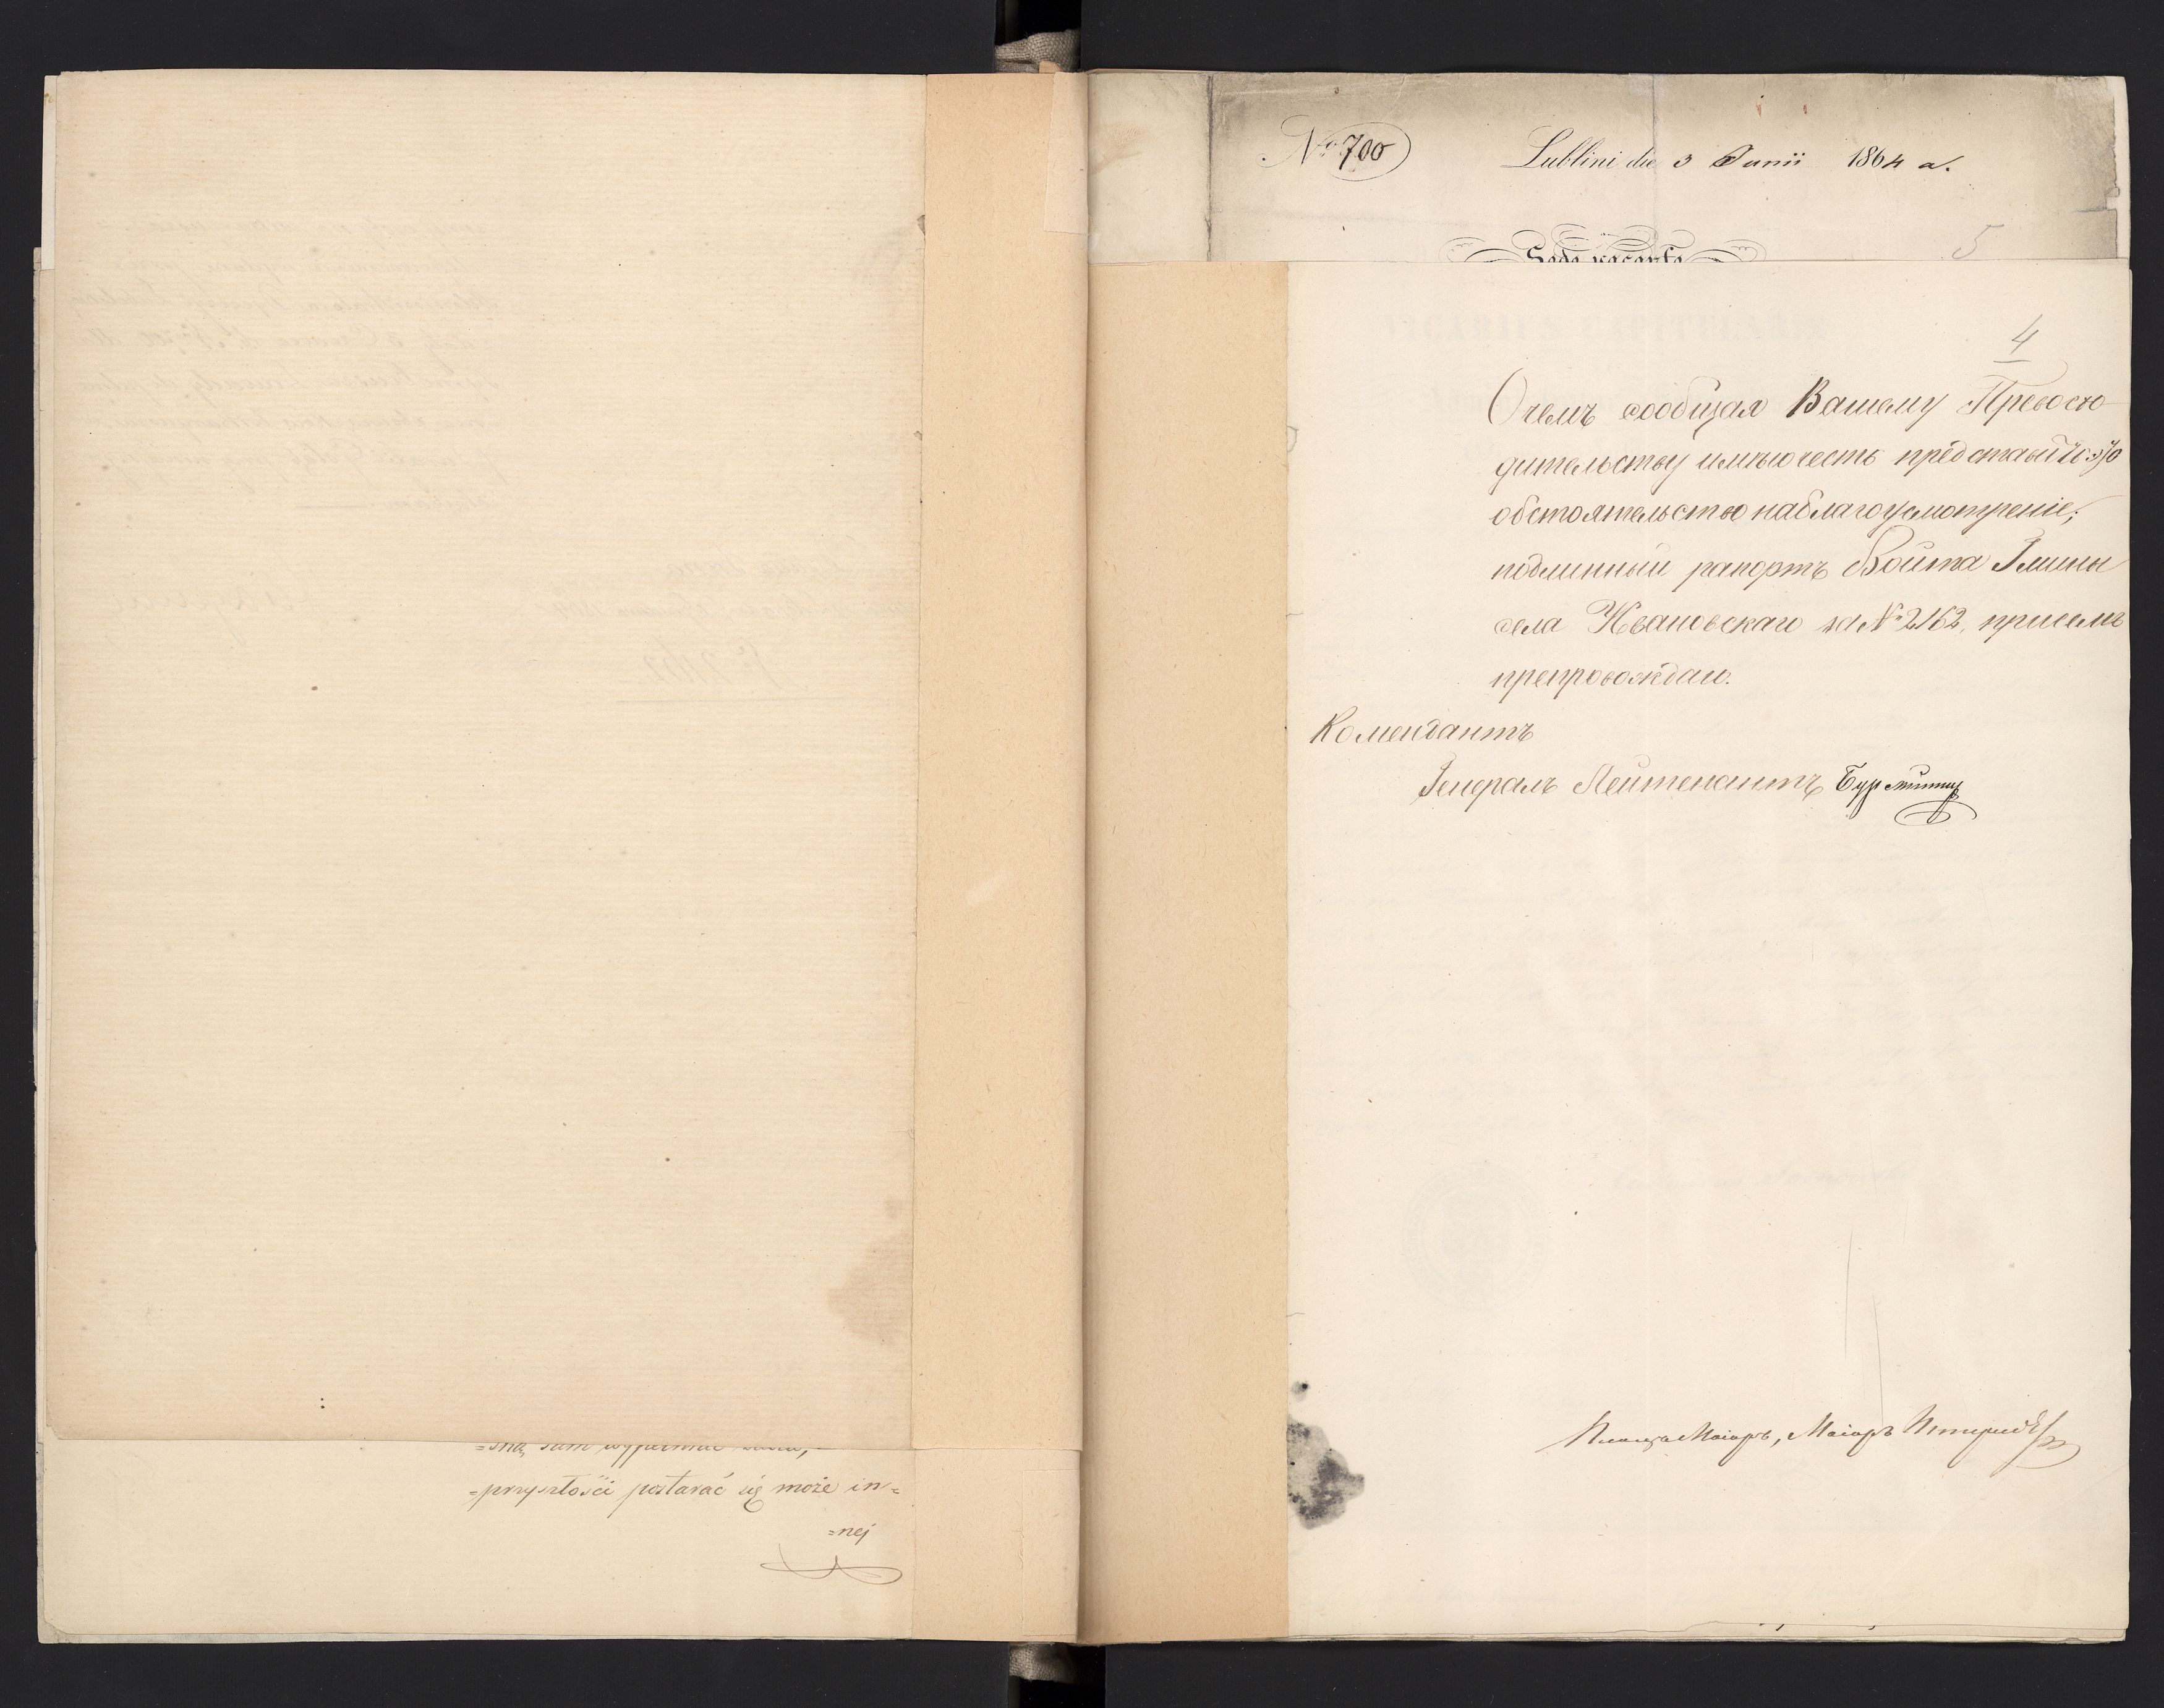 =przyszłości postarać się może in=
=nej
No 700
Lublini die 3 Junii 1864 a.
Sede vacante
5
4
О чемъ сообщая Вашему Превосхо
дительству имѣю честь представить это
обстоятельство на благоусмотреніе;
подлинный рапортъ Войта Гмины
села Ивановскаго за № 2162, при семъ
препровождаю.
Комендантъ
Генералъ Лейтенантъ
Плацъ Маіоръ, Маіоръ